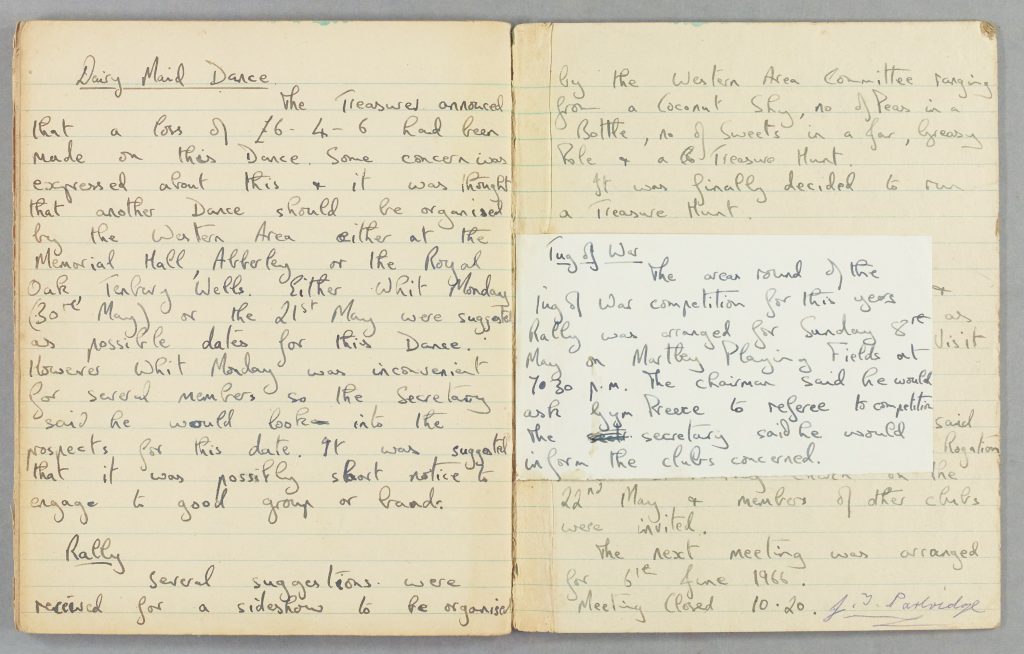 Dairy Maid Dance.
The Treasurer announced
that a loss of £6-4-6 had been
made on this Dance. Some concern was
expressed about this & it was thought
that another Dance should be organised
by the Western Area either at the
Memorial Hall, Abberley or the Royal
Oak Tenbury Wells. Either Whit Monday
(30th May) or the 21st May were suggested
as possible dates for this Dance.
However Whit Monday was inconvenient
for several members so the Secretary
said he would look into the
prospects for this date. It was suggested
that it was possibly short notice to
engage to good group or band.
Rally
Several suggestions were
received for a sideshow to be organised
by the Western Area Committee ranging
from a Coconut Shy, no of Peas in a
Bottle, no of Sweets in a Jar, Greasy
Pole & a Treasure Hunt.
It was finally decided to run
a Treasure Hunt.
Tug of War
The area round of the
Tug of War competition for this years
Rally was arranged for Sunday 8th
May on Martley Playing Fields at
p.m. The chairman said he would
ask Preece to referee to competition
The secretary said he would
inform the clubs concerned.
&
as
Visit
said
Rogation
Church on the
22nd May & members of other clubs
were invited.
The next meeting was arranged
for 6th June 1966.
Meeting Closed 10.20. J. Partridge